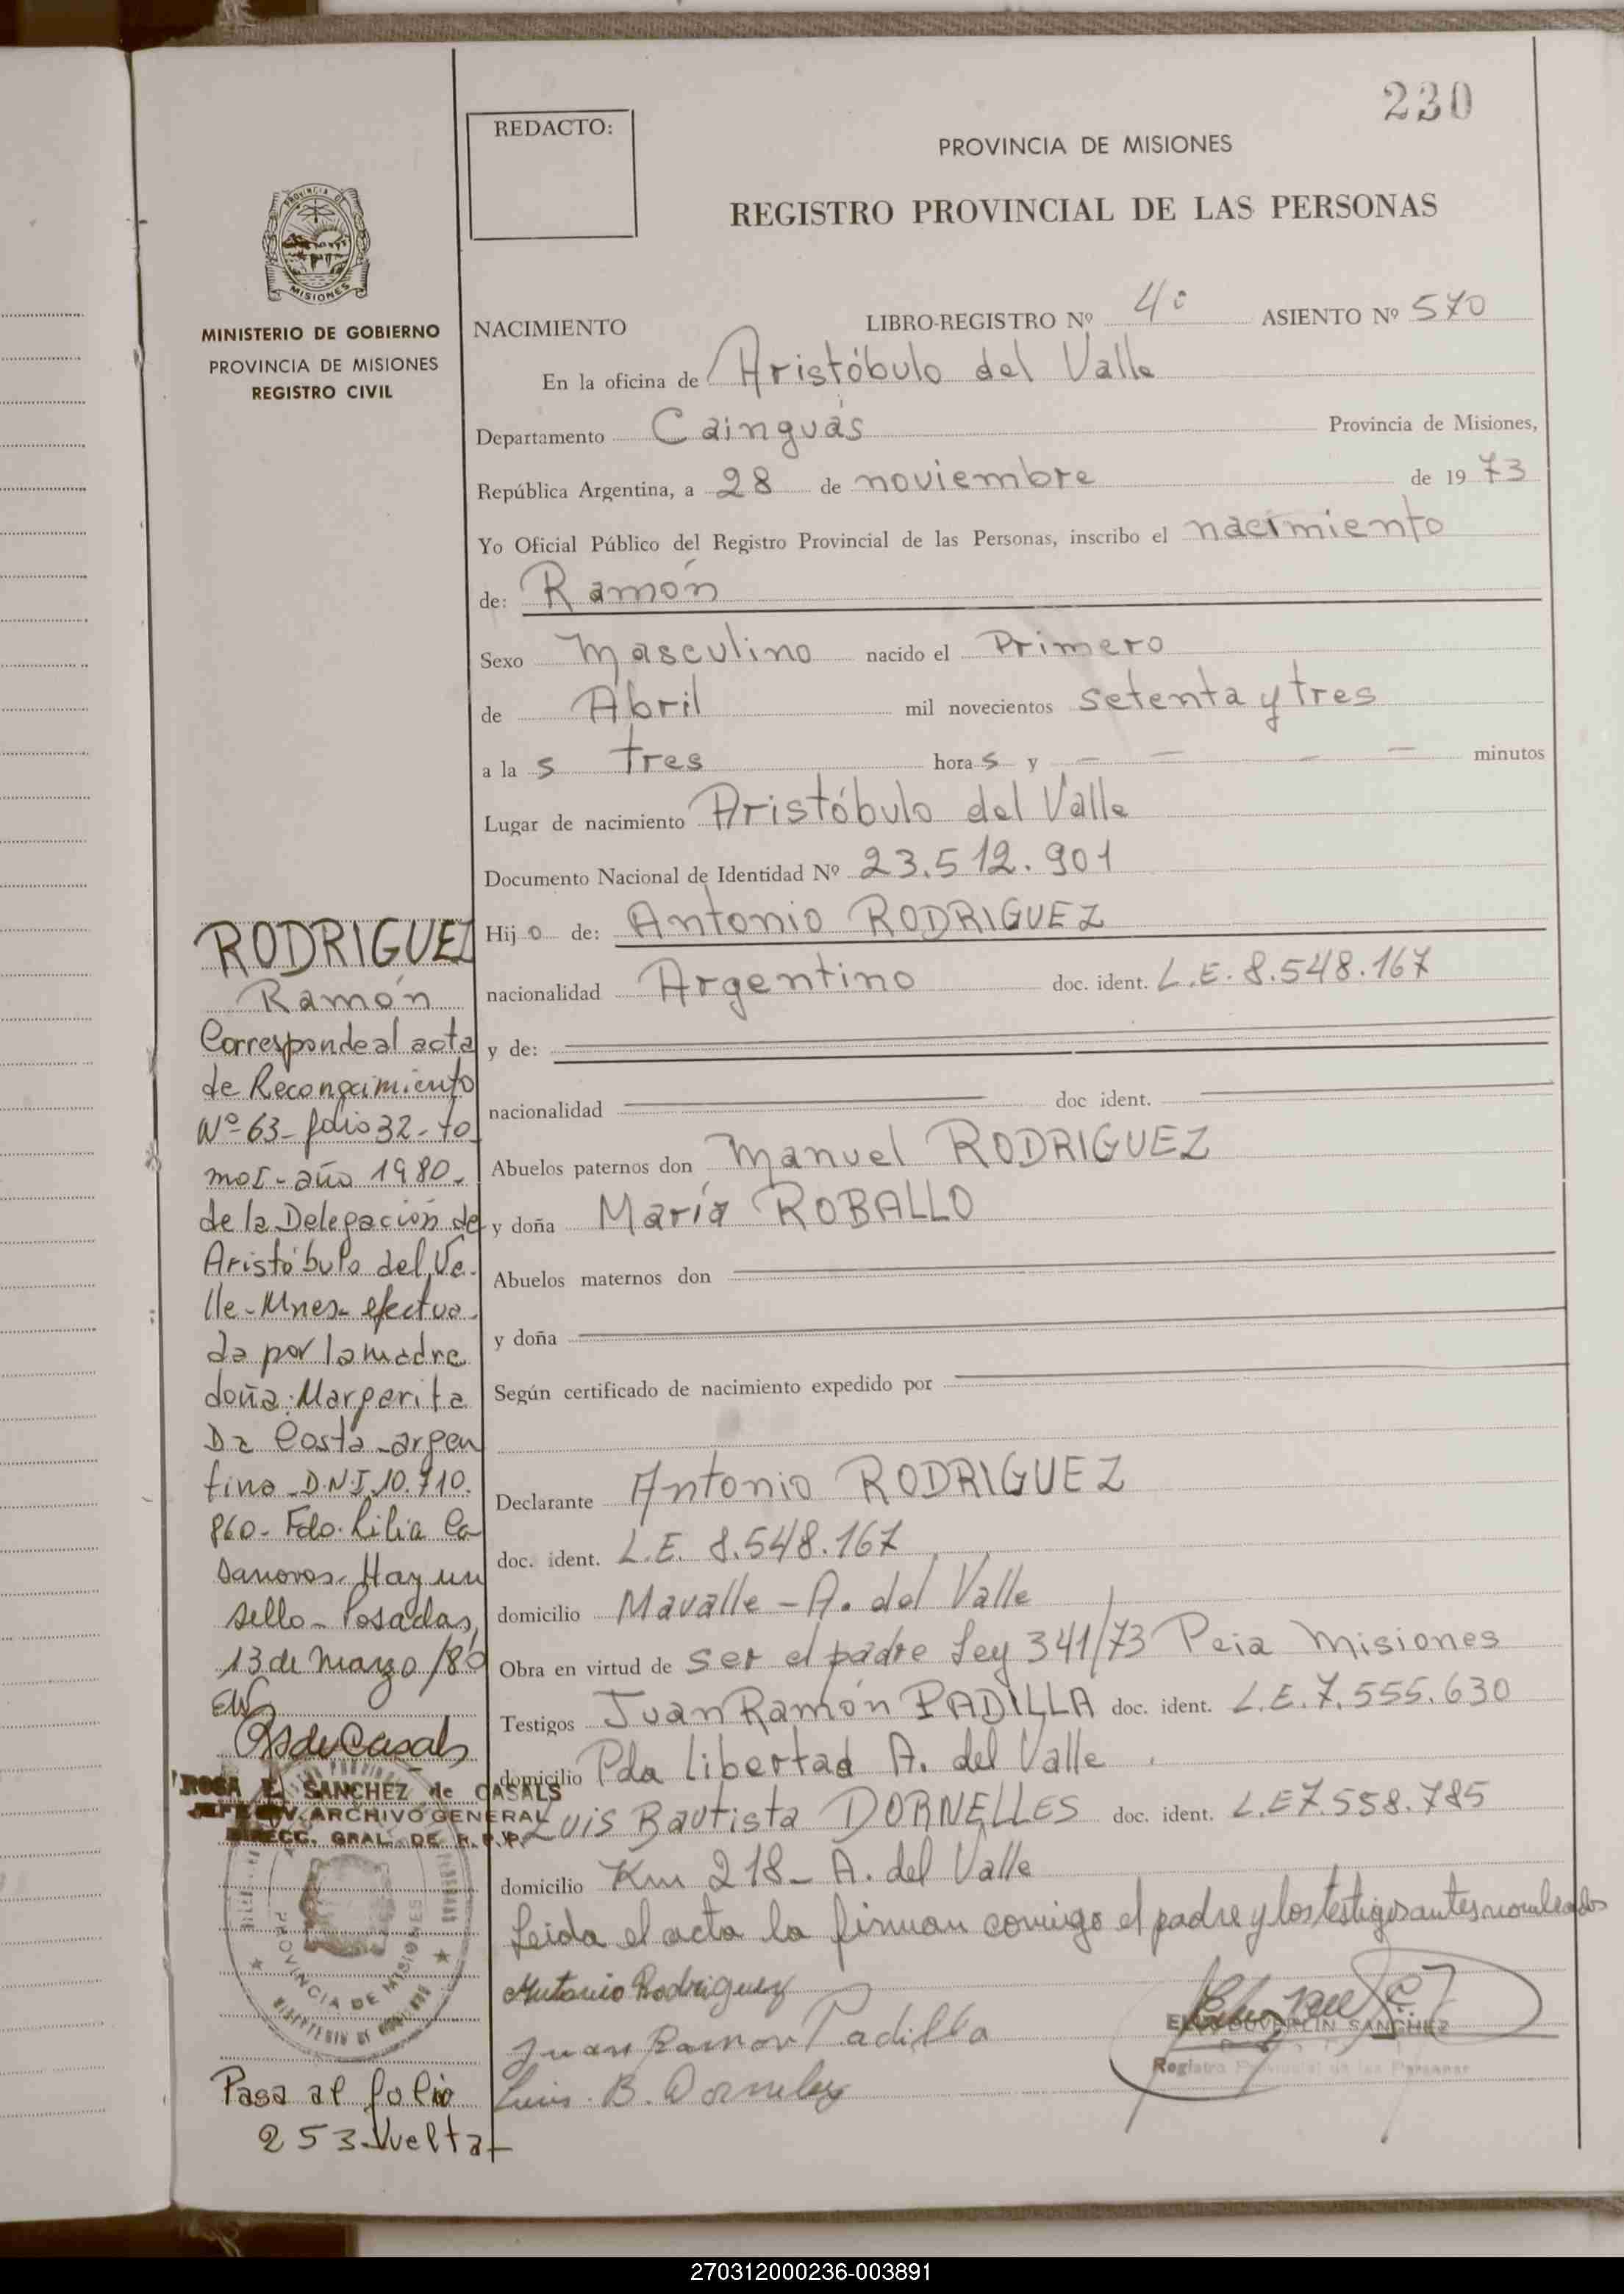 230
REDACTO:
PROVINCIA DE MISIONES
REGISTRO PROVINCIAL DE LAS PERSONAS
PROVINCIA DE
MISIONES
MINISTERIO DE GOBIERNO
PROVINCIA DE MISIONES
REGISTRO CIVIL
NACIMIENTO LIBRO-REGISTRO Nº 4º ASIENTO Nº 570
En la oficina de Aristóbulo del Valle
Departamento Cainguás Provincia de Misiones,
República Argentina, a 28 de noviembre de 1973
Yo Oficial Público del Registro Provincial de las Personas, inscribo el nacimiento
de: Ramón
Sexo Masculino nacido el Primero
de Abril mil novecientos setenta y tres
a la s tres hora s y — — — — minutos
Lugar de nacimiento Aristóbulo del Valle
Documento Nacional de Identidad Nº 23.512.901
Hij o de: Antonio RODRIGUEZ
nacionalidad Argentino doc. ident. L.E. 8.548.167
y de:
nacionalidad doc ident.
Abuelos paternos don Manuel RODRIGUEZ
y doña María ROBALLO
Abuelos maternos don
y doña
Según certificado de nacimiento expedido por
Declarante Antonio RODRIGUEZ
doc. ident. L.E. 8.548.167
domicilio Mavalle - A. del Valle
Obra en virtud de ser el padre Ley 341/73 Pcia Misiones
Testigos Juan Ramón PADILLA doc. ident. L.E. 7.555.630
domicilio Pda Libertad A. del Valle
Luis Bautista DORNELLES doc. ident. L.E 7.558.785
domicilio Km 218 - A. del Valle
Leida el acta la firman conmigo el padre y los testigos antes nombrados
Antonio Rodriguez
Juan Ramon Padilla
Luis B. Dornelles
SANCHEZ
Registro Provincial de las Personas
RODRIGUEZ
Ramón
Corresponde al acta
de Reconocimiento
Nº 63 - folio 32 - to
mo I - año 1980 -
de la Delegación de
Aristóbulo del Va-
lle - Mnes - efectua-
da por la madre
doña: Margarita
Da Costa - argen
tina - D.N.I. 10.710.
860 - Fdo. Lilia Ca-
sanova. Hay un
sello - Posadas,
13 de marzo /80
ROSA E. SANCHEZ de CASALS
JEFE DIV. ARCHIVO GENERAL
DIRECC. GRAL. DE R.P.P.
PROVINCIA DE MISIONES
MINISTERIO DE GOBIERNO
Pasa al folio
253 vuelta
270312000236-003891